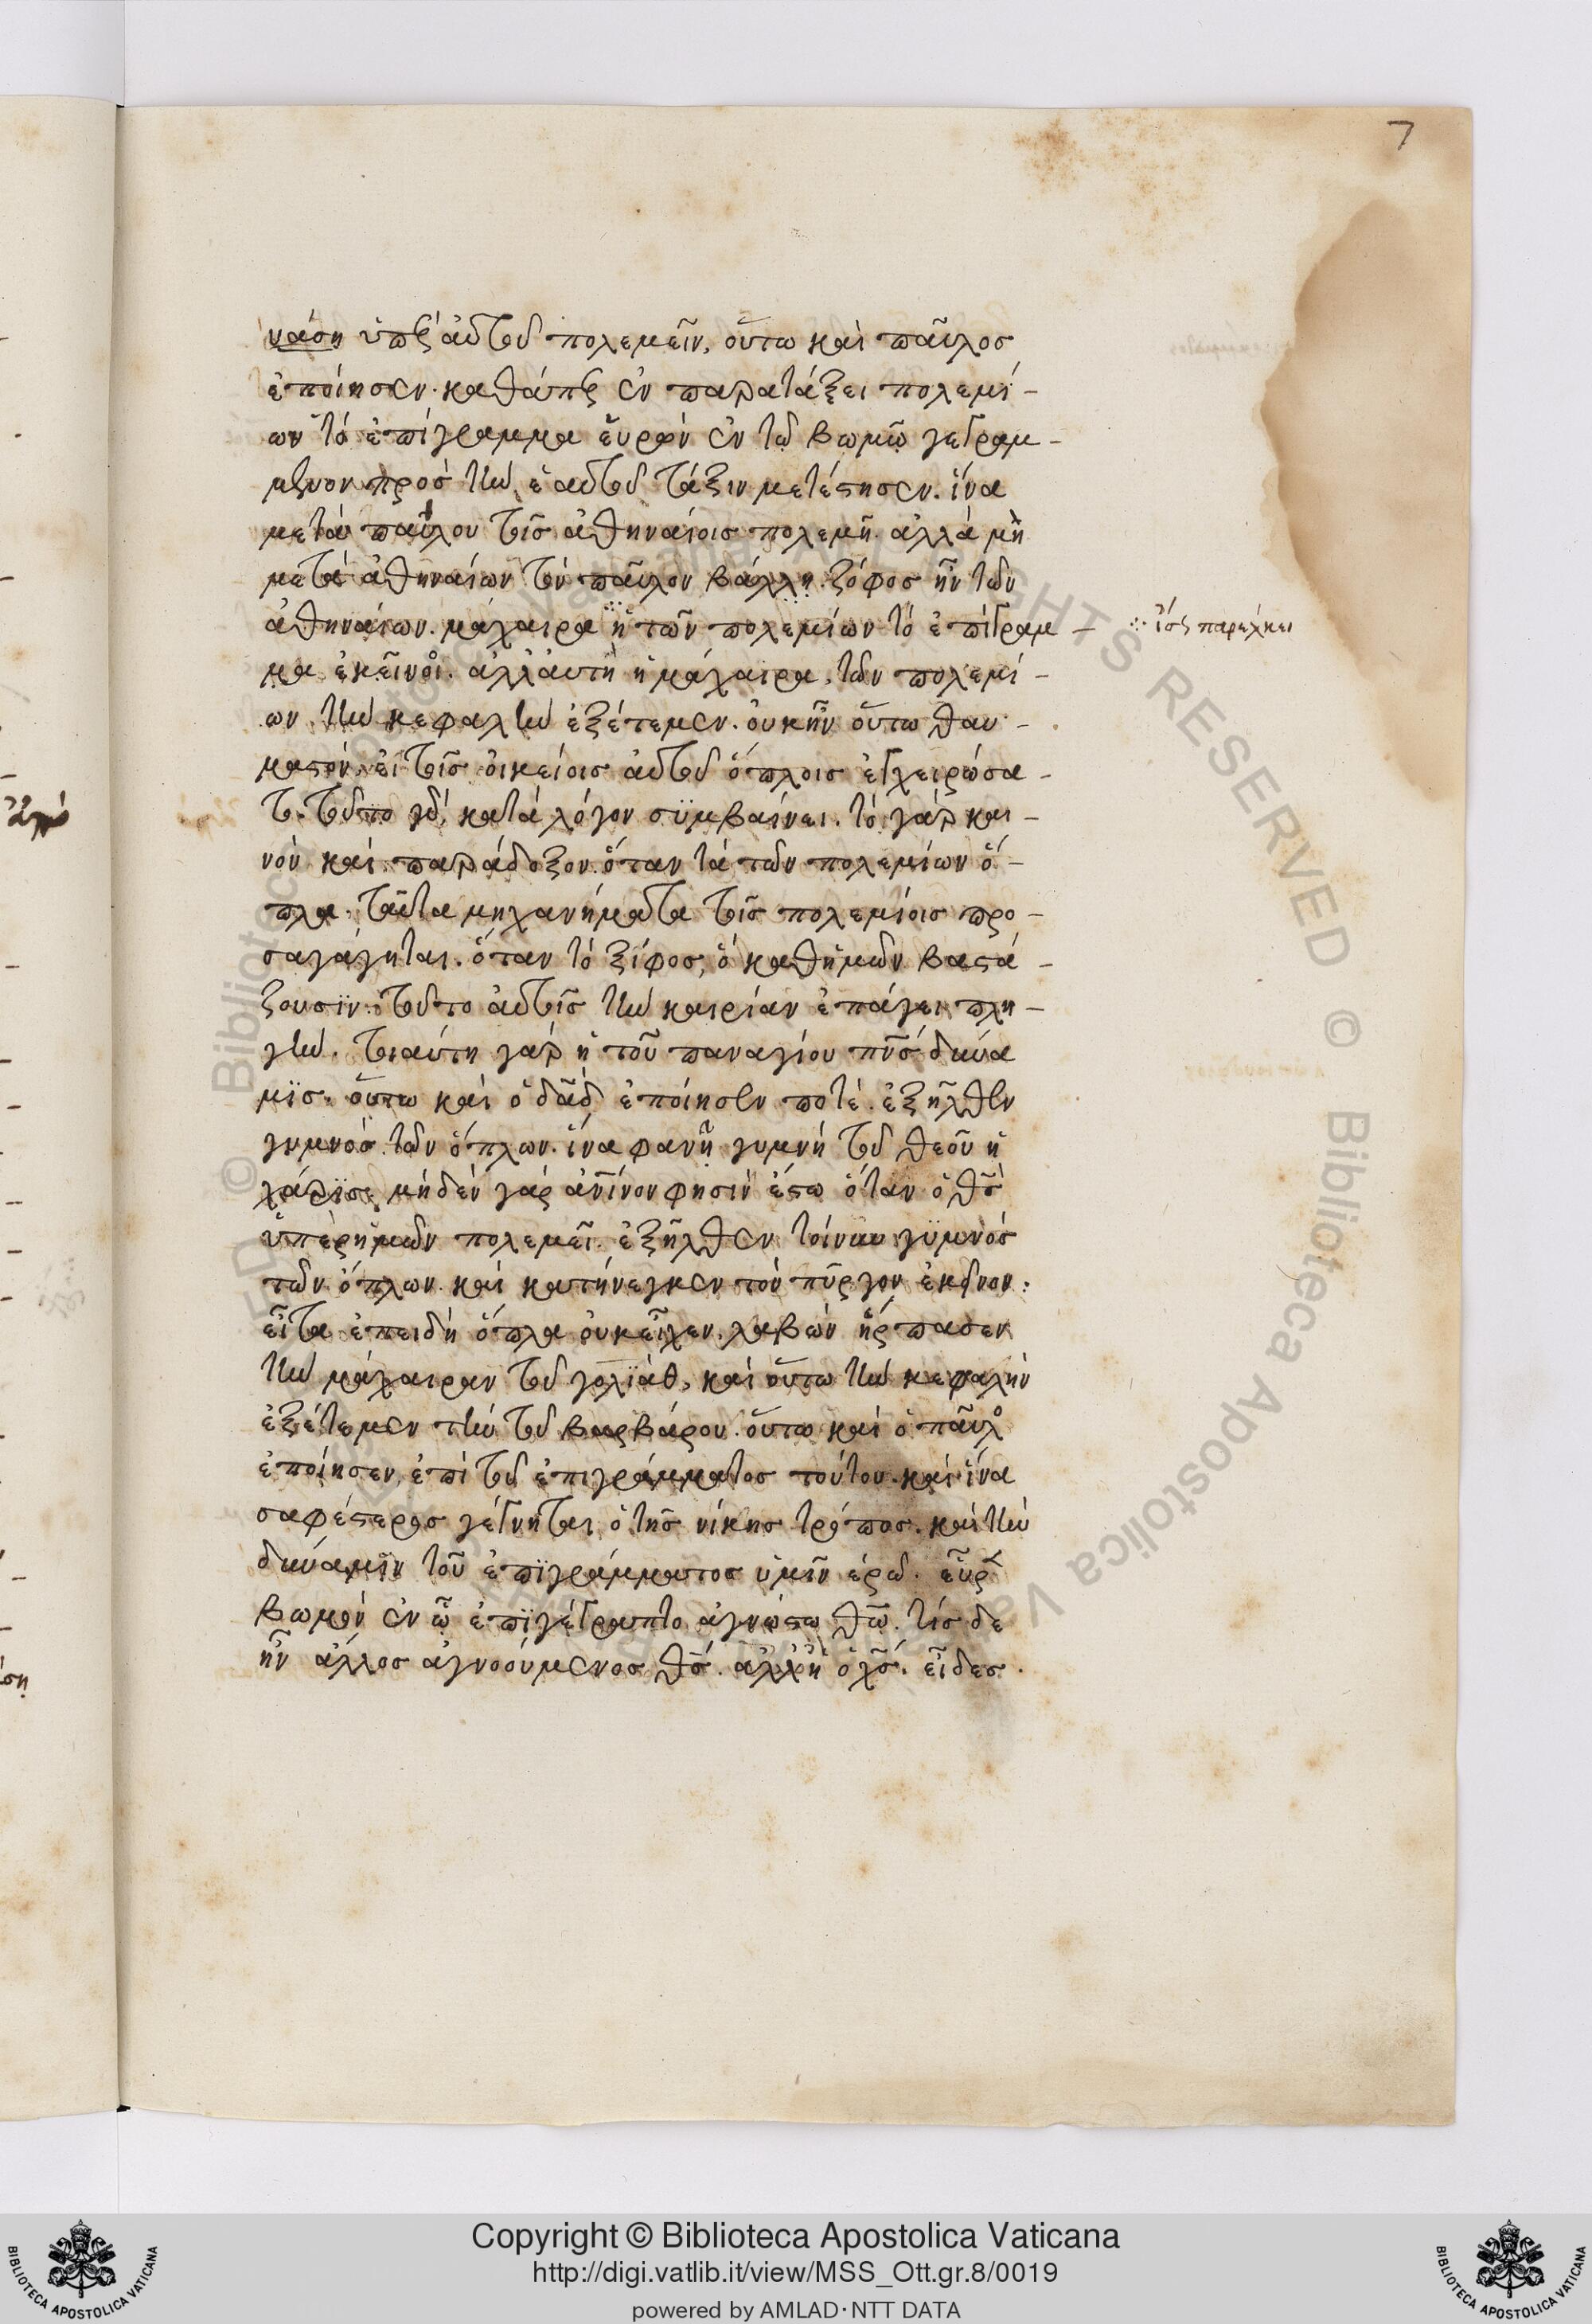 7
νάση ὑπὲρ αὐτοῦ πολεμεῖν, οὕτω καὶ παῦλος
ἐποίησεν. καθάπερ ἐν παρατάξει πολεμί-
ων τὸ ἐπίγραμμα εὑρὼν ἐν τῷ βωμῷ γεγραμ-
μένον πρὸς τὴν ἑαυτοῦ τάξιν μετέστησεν. ἵνα
μετὰ παύλου τοῖς ἀθηναίοις πολεμῇ. ἀλλὰ μὴ
μετὰ ἀθηναίων τὸν παῦλον βάλλῃ. ξίφος ἦν τῶν
ἀθηναίων. μάχαιρα ἦ τῶν πολεμίων τὸ ἐπίγραμ-
∴ ἴσως παρέλκει
μα ἐκεῖνο. ἀλλ' αὐτὴ ἡ μάχαιρα, τῶν πολεμί-
ων τὴν κεφαλὴν ἐξέτεμεν. οὐκ ἦν οὕτω θαυ-
μαστόν, εἰ τοῖς οἰκείοις αὐτοῦ ὅπλοις ἐχειρώσα-
το. τοῦτο γὰρ κατὰ λόγον συμβαίνει. τὸ γὰρ και-
νὸν καὶ παράδοξον. ὅταν τὰ τῶν πολεμίων ὅ-
πλα, ταῦτα μηχανήματα τοῖς πολεμίοις προ-
σαγάγηται. ὅταν τὸ ξίφος, ὃ καθ' ἡμῶν βαστά-
ζουσιν. τοῦτο αὐτοῖς τὴν καιρίαν ἐπάγει πλη-
γήν. τοιαύτη γὰρ ἡ τοῦ παναγίου πν̅ς δύνα
μις. οὕτω καὶ ὁ δα̅δ ἐποίησεν ποτέ. ἐξῆλθεν
γυμνὸς τῶν ὅπλων. ἵνα φανῇ γυμνὴ τοῦ θεοῦ ἡ
χάρις. μηδὲν γὰρ ἀν̅ινον φησὶν ἔστω ὅταν ὁ θ̅ς
ὑπὲρ ἡμῶν πολεμεῖ. ἐξῆλθεν τοίνυν γυμνὸς
τῶν ὅπλων. καὶ κατήνεγκεν τὸν πύργον ἐκεῖνον:
εἶτα ἐπειδὴ ὅπλα οὐκ εἶχεν. λαβὼν ἥρπασεν
τὴν μάχαιραν τοῦ γολιὰθ, καὶ οὕτω τὴν κεφαλὴν
ἐξέτεμεν τὴν τοῦ βαρβάρου. οὕτω καὶ ὁ παῦλος
ἐποίησεν ἐπὶ τοῦ ἐπιγράμματος τούτου. καὶ ἵνα
σαφέστερος γένηται ὁ τῆς νίκης τρόπος. καὶ τὴν
δύναμιν τοῦ ἐπιγράμματος ὑμῖν ἐρῶ. εὗρε
βωμὸν ἐν ᾧ ἐπιγέγραπτο ἀγνώστω θ̅ω. τίς δε
ἦν ἄλλος ἀγνοούμενος θ̅ς. ἀλλ' ἢ ὁ χ̅ς. εἶδες.
Copyright © Biblioteca Apostolica Vaticana
http://digi.vatlib.it/view/MSS_Ott.gr.8/0019
powered by AMLAD·NTT DATA